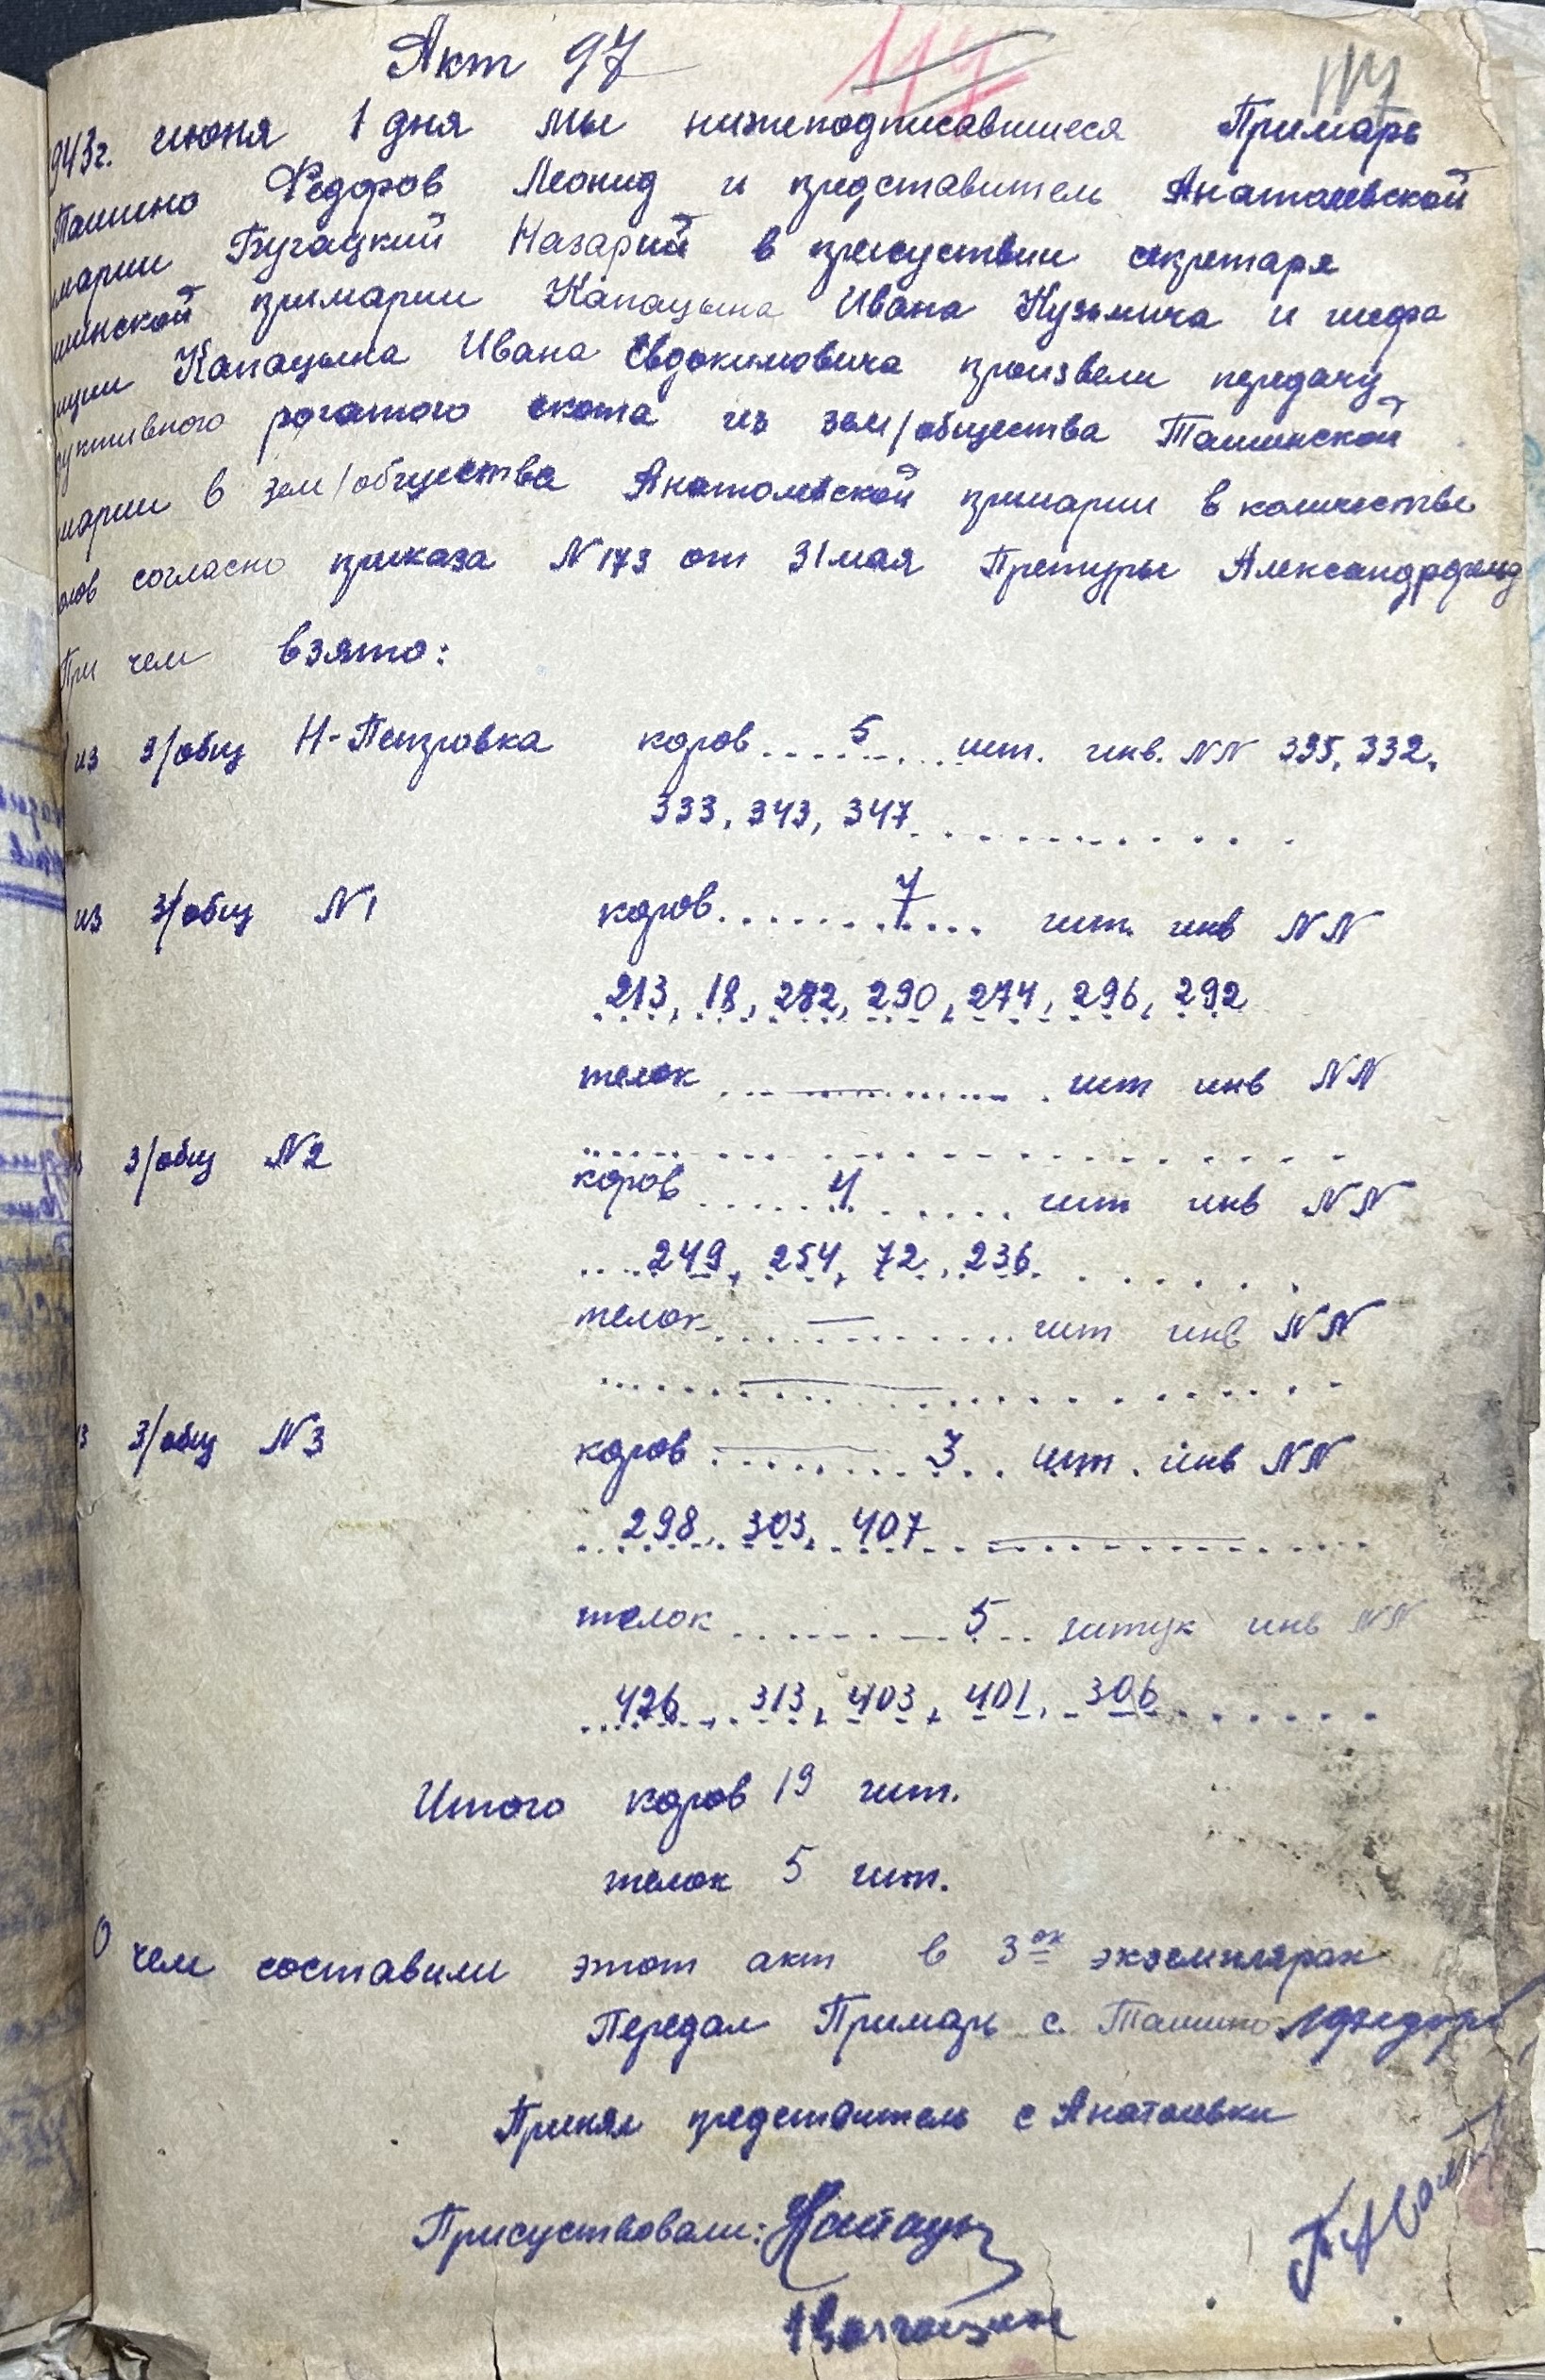 Акт 97
117
117
943г. июня 1 дня мы нижеподписавшиеся Примарь
Ташино Федоров Леонид и представитель Анатолевской
марии Бугацкий Назарий в присуствии секретаря
шинской примарии Капацына Ивана Кузьмича и шефа
Капацына Ивана Евдокимовича произвели передачу
уктивного рогатого скота из зем/общества Ташинской
марии в зем/общества Анатолевской примарии в количестве
олов согласно приказа N 173 от 31 мая Претуры Александрфельд
При чем взято:
из з/общ Н-Петровка коров.... 5 .... шт. инв. NN 395, 332,
333, 343, 347
из з/общ N1 коров....... 7 .... шт. инв NN
213, 18, 282, 290, 274, 296, 292
телок ... — ... шт инв NN
з/общ N2
коров ...... 4 ...... шт инв NN
249, 254, 72, 236
телок ... — ... шт инв NN
з З/общ N3 коров ...... 3 ... шт. инв NN
298, 303, 407
телок ........ 5 ... штук инв NN
426, 313, 403, 401, 306
Итого коров 19 шт.
телок 5 шт.
О чем составили этот акт в 3ох экземплярах
Передал Примарь с. Ташино
Принял представитель с Анатолевки
Присуствовали: